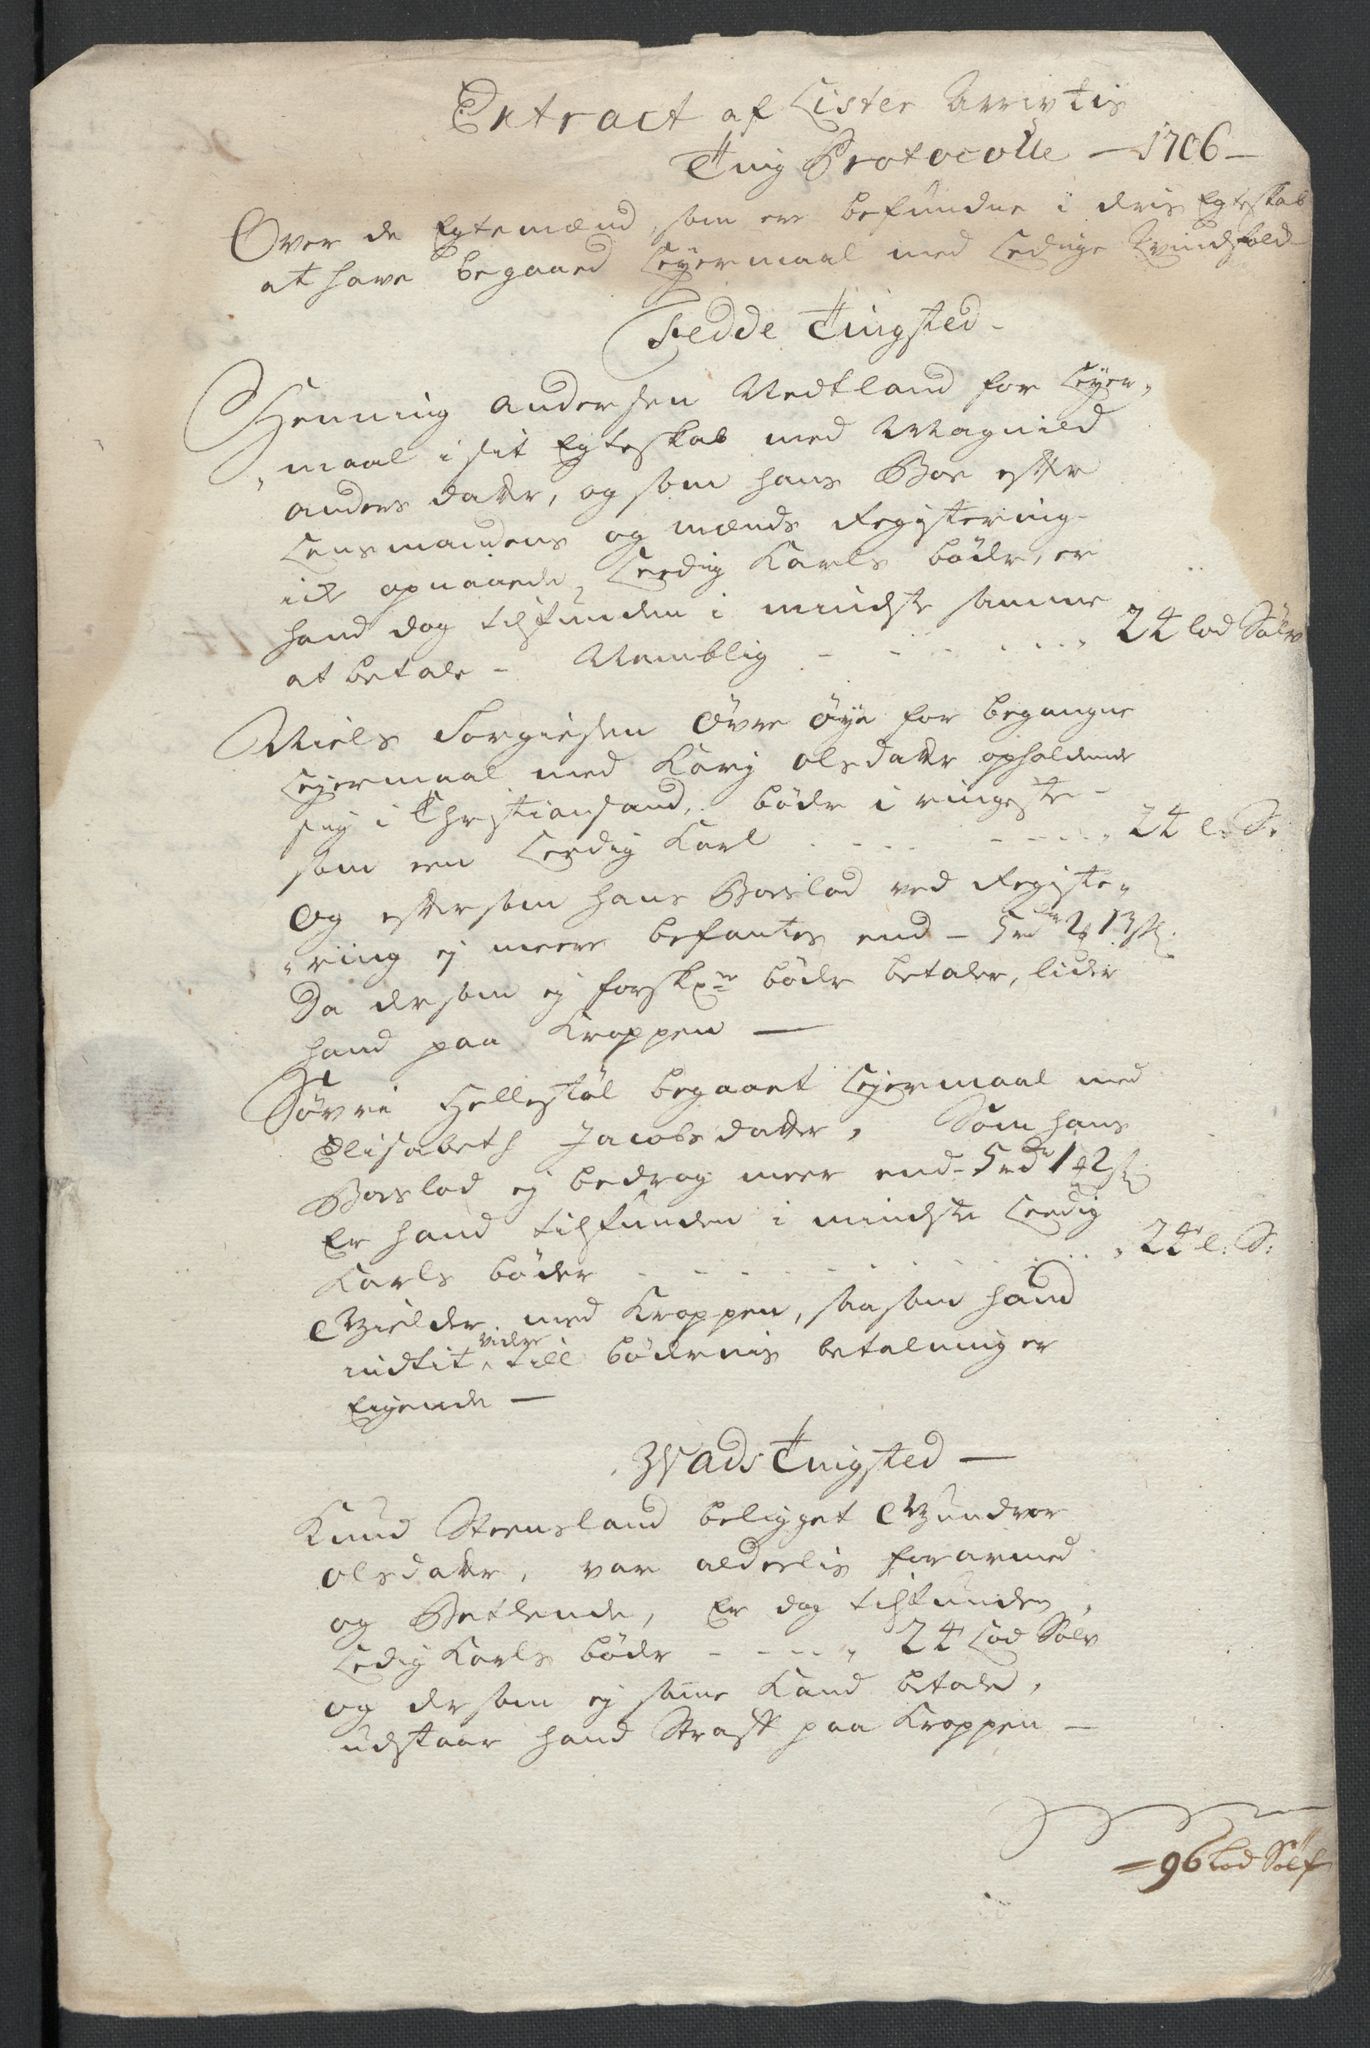 Extract af Lister Ambtis
Ting Protocolle — 1706 —
Over de Egtemænd, som ere befundne i deris Egteskab
at have begaaed Leyermaal med Ledige Qvindfolck
Fedde Tingsted —
Henning Andersen Nedtland for Leyer-
maal i sit Egteskab med Magnild
Anders datter, og som hans Boe efter
Lensmandens og mænds Registering
icke opnaaede Leedig Karls bøder, er
hand dog tilfunden i mindste samme
at betale - Nemblig - - - - - 24 lod Sølv
Niels Torgiesen Øvre Øye for begangne
Leyermaal med Karj Olsdatter opholdende
sig i Christiansand, bøder i ringeste
som een Leedig Karl - - - - 24 l: S:
Og eftersom hans Boeslod ved Registe-
ring ej meere befantes end - 5 rdr 2 13 s
Da dersom ej forskrne bøder betaler, lider
hand paa Kroppen —
Søvri Hellestøl begaaet Leyermaal med
Elisabeth Jacobsdatter, Som hans
Boeslod ej bedrog meer end - 5 rdr 1 2 s
Er hand tilfunden i mindste Leedig
Karls bøder - - - - - 24 l: S:
Gielder med Kroppen, saasom hand
indtit videre till bødernis betalning er
Eigende —
Vads Tingsted —
Knud Steensland beligget Gundvor
Olsdatter, var alderlis forarmed
og Betlende, Er dog tilfunden
Ledig Karls bøder - - - - 24 Lod Sølv
og dersom ej same kand betale,
udstaar hand Straff paa Kroppen —
= 96 Lod Sølf